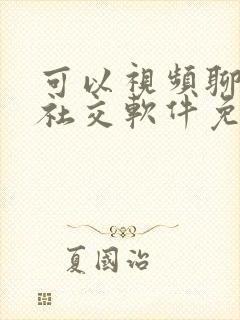 可以視頻聊
社交軟件免
夏國治